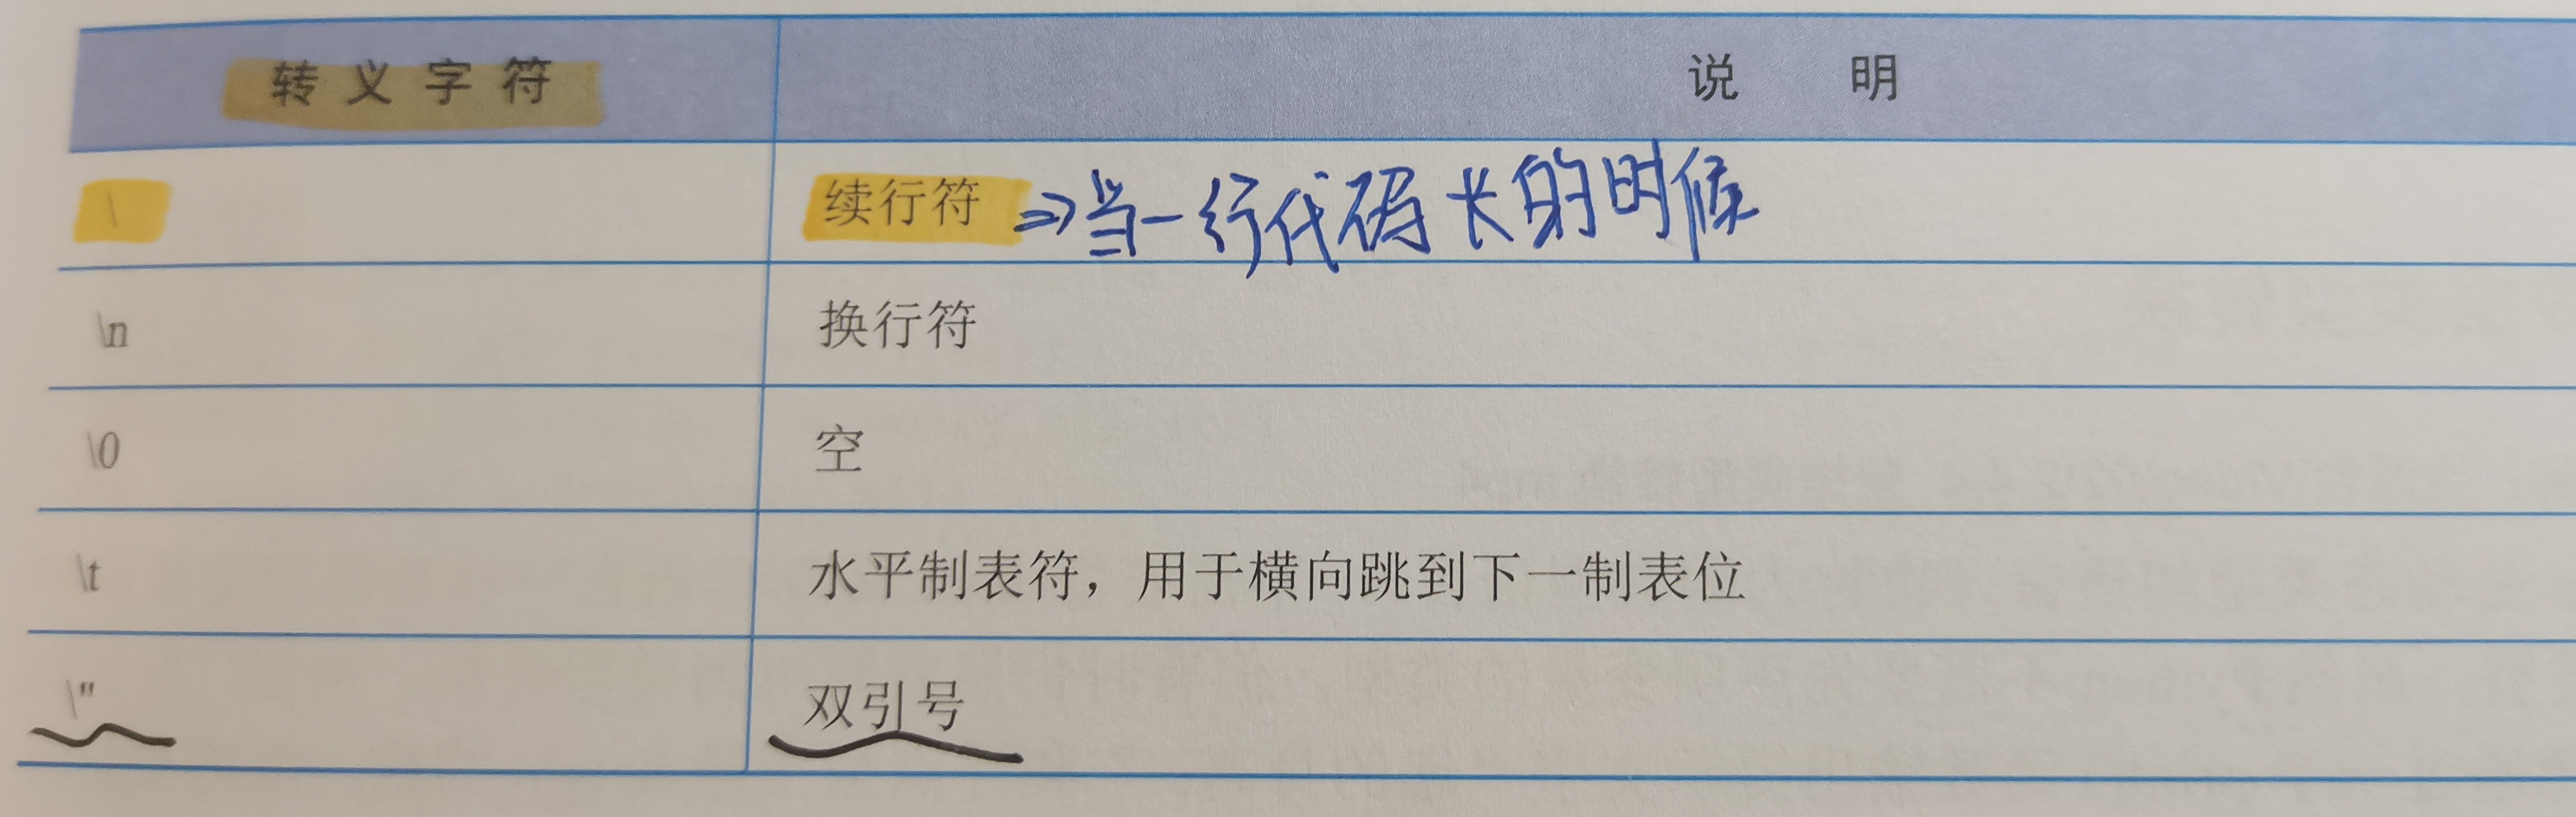 转义字符 说 明
\ 续行符 ⇒当一行代码长的时候
\n 换行符
\0 空
\t 水平制表符，用于横向跳到下一制表位
\" 双引号